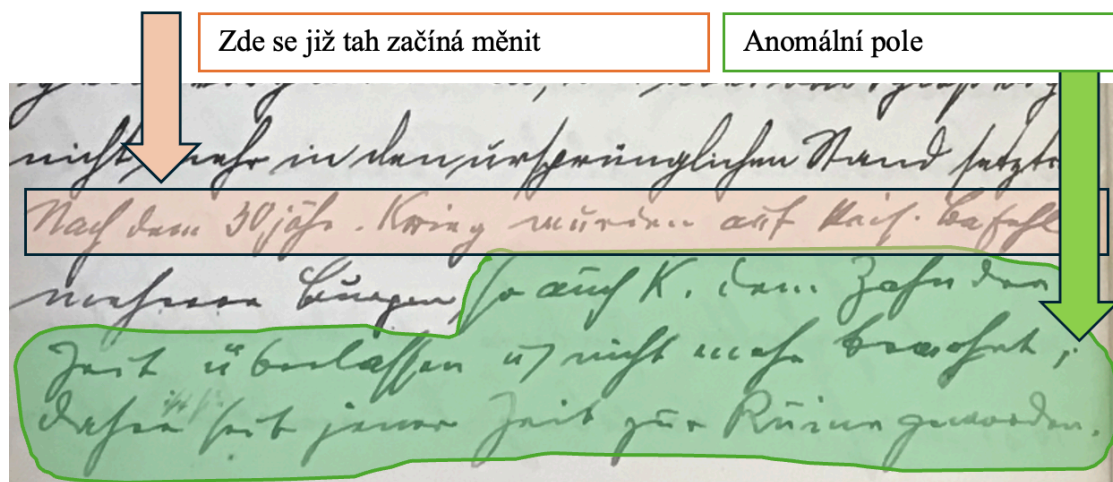 Zde se již tah začíná měnit
Anomální pole
nicht mehr in den ursprünglichen Stand setzte
Nach dem 30jähr. Krieg wurden auf Kais. Befehl
mehrere Burgen so auch K. dem Zahn der
Zeit überlassen u nicht mehr bewohnt;
daher seit jener Zeit zur Ruine geworden.